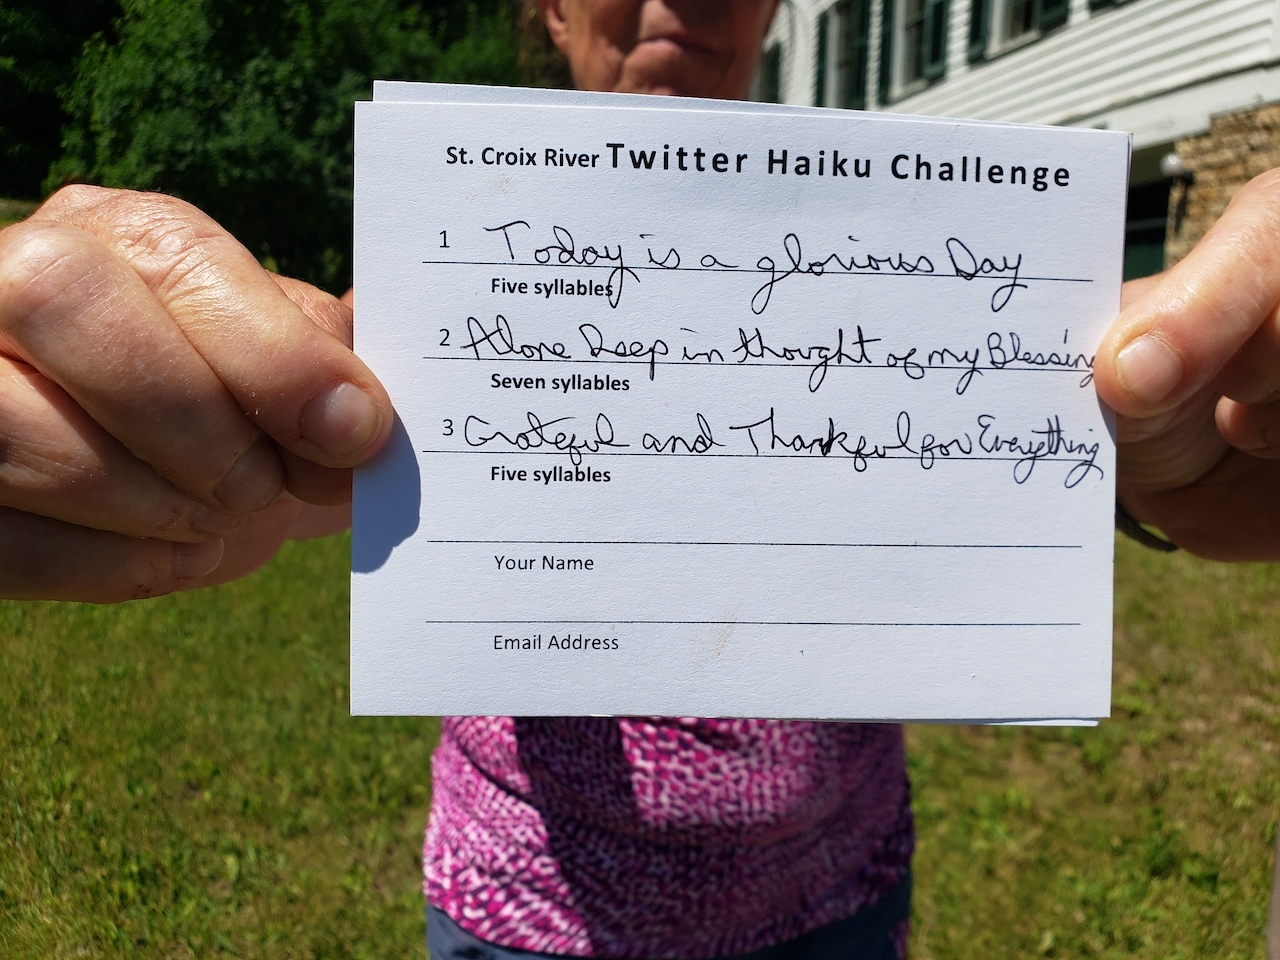 St. Croix River Twitter Haiku Challenge
1 Today is a glorious Day
Five syllables
2 Alone Deep in thought of my Blessing
Seven syllables
3 Grateful and Thankful for Everything
Five syllables
Your Name
Email Address